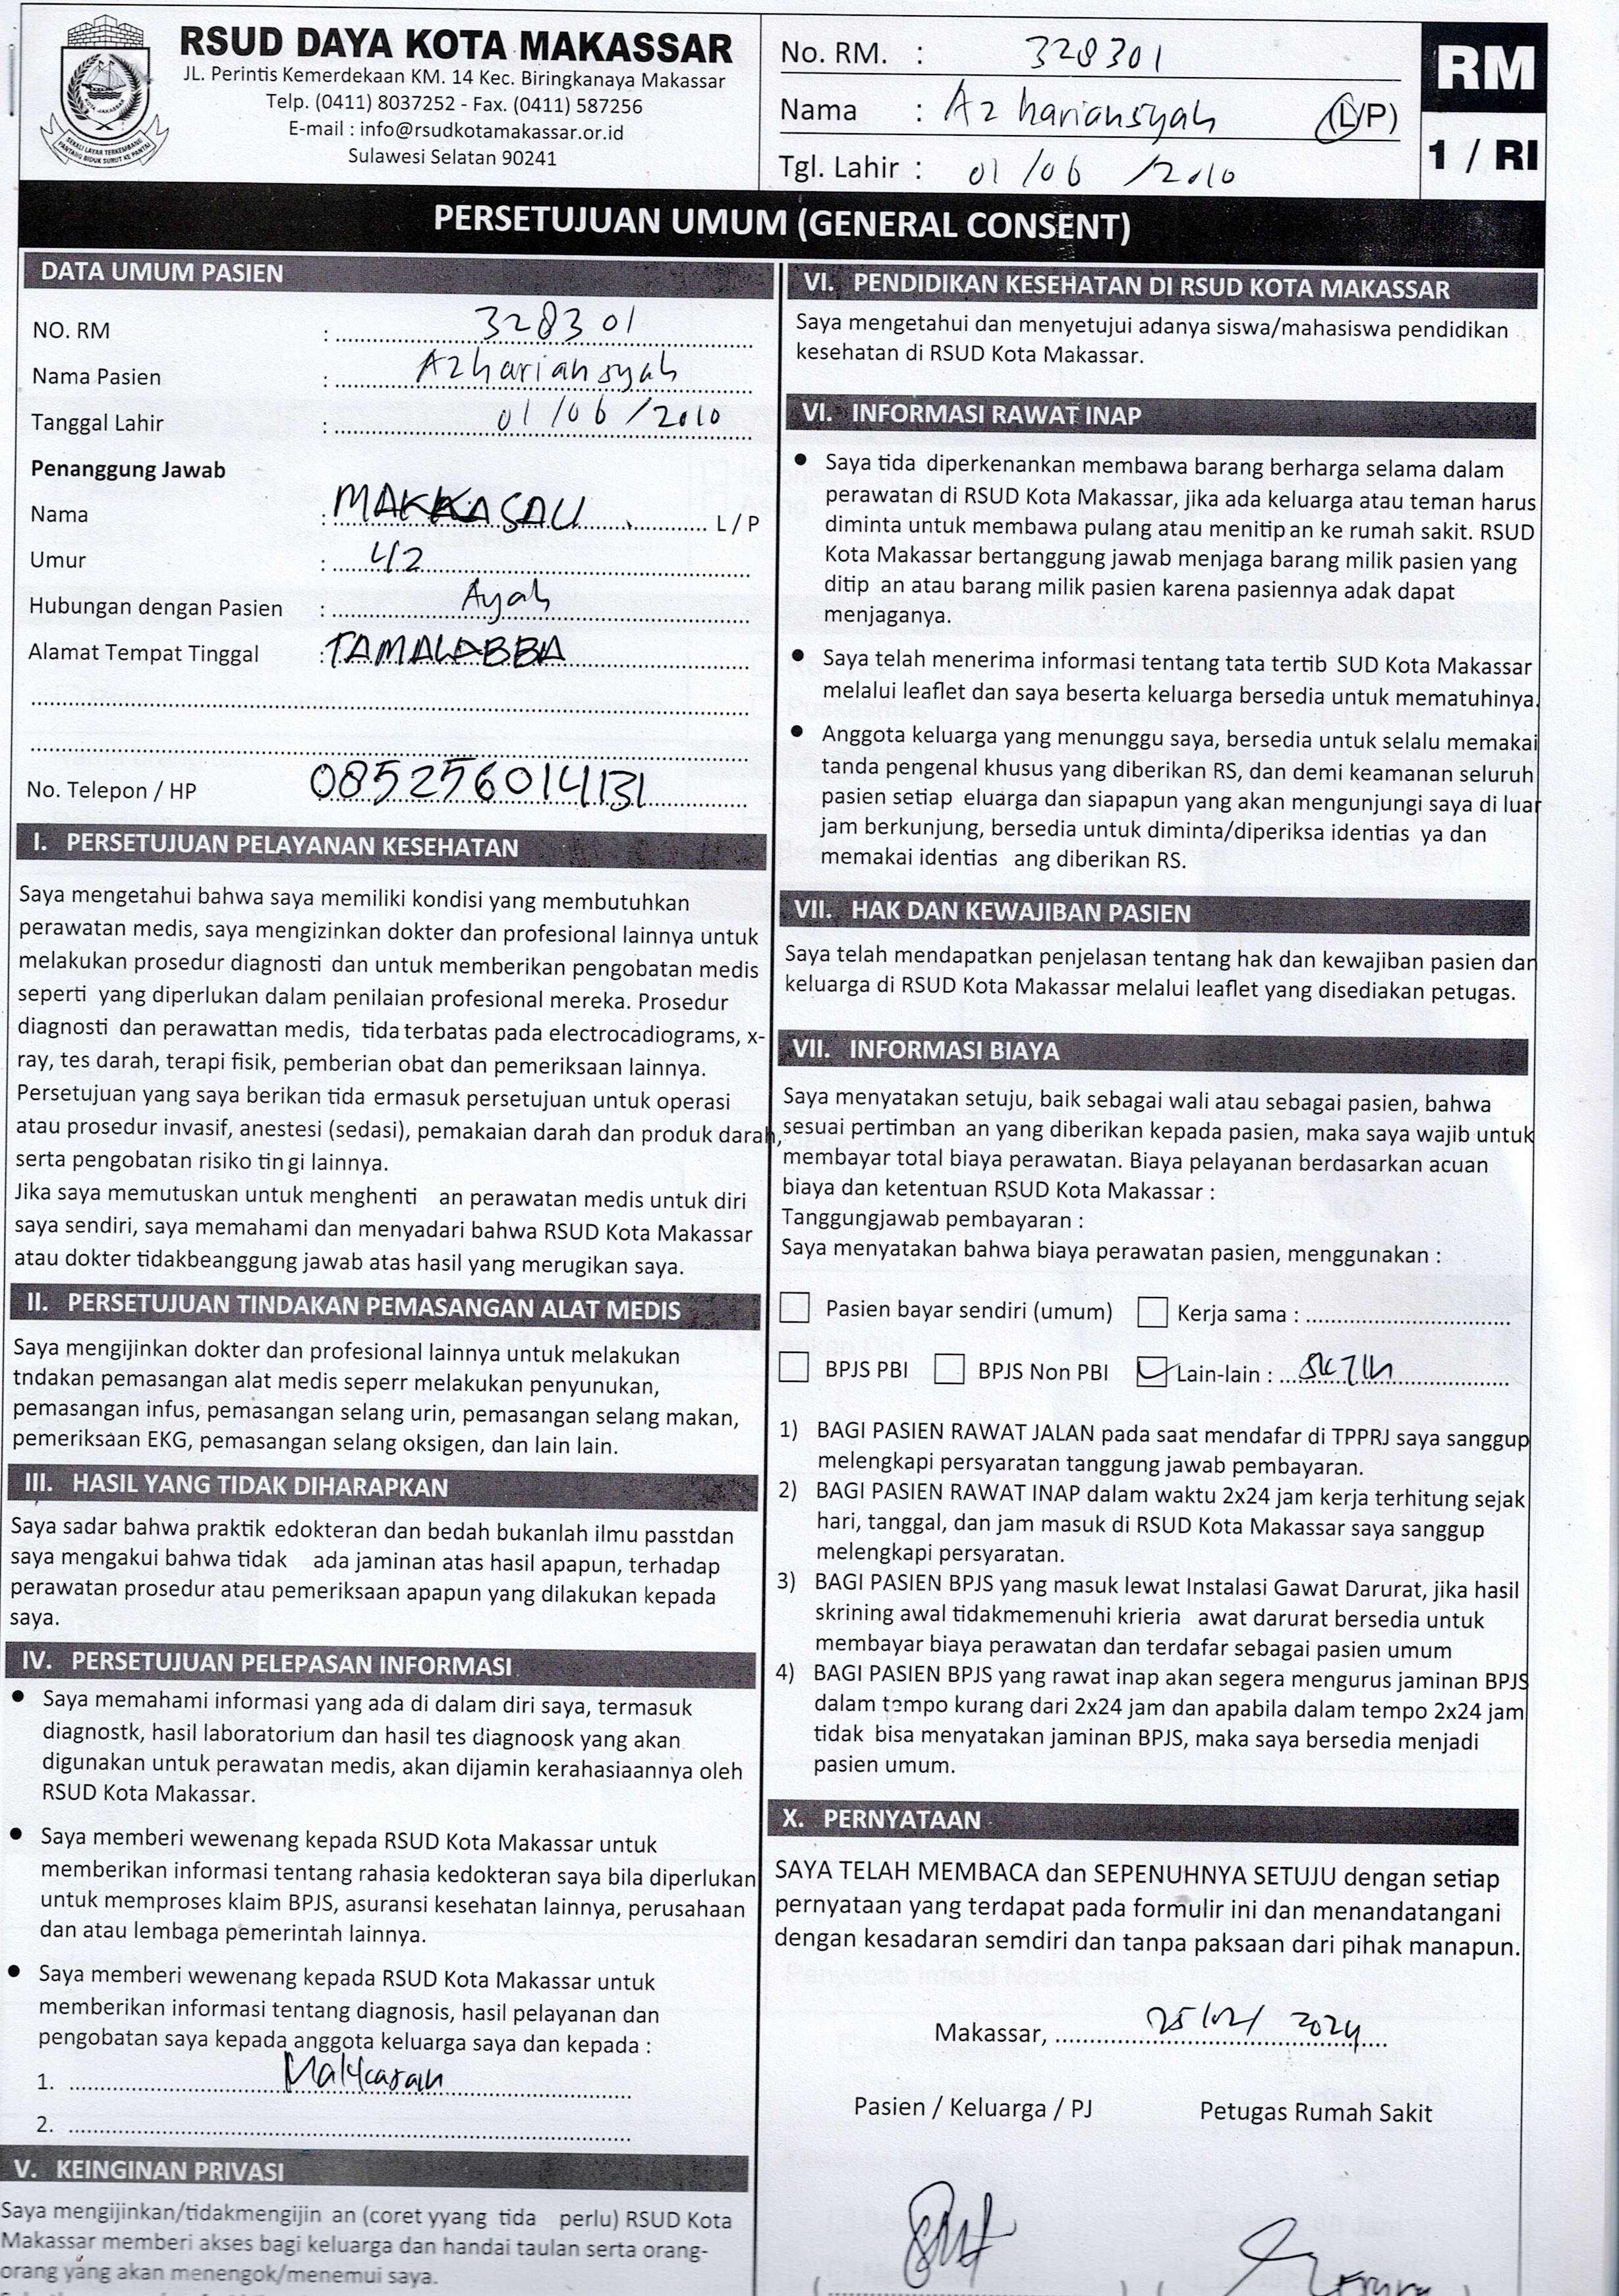 RSUD DAYA KOTA MAKASSAR
JL. Perintis Kemerdekaan KM. 14 Kec. Biringkanaya Makassar
Telp. (0411) 8037252 - Fax. (0411) 587256
E-mail : info@rsudkotamakassar.or.id
Sulawesi Selatan 90241
No. RM. : 328301
Nama : Azhariansyah (L/P)
Tgl. Lahir : 01/06/2010
RM
1 / RI
PERSETUJUAN UMUM (GENERAL CONSENT)
DATA UMUM PASIEN
NO. RM : 328301
Nama Pasien : Azhariansyah
Tanggal Lahir : 01/06/2010
Penanggung Jawab
Nama : MAKKASAU L / P
Umur : 42
Hubungan dengan Pasien : Ayah
Alamat Tempat Tinggal : TAMALABBA
No. Telepon / HP 085256014131
I. PERSETUJUAN PELAYANAN KESEHATAN
Saya mengetahui bahwa saya memiliki kondisi yang membutuhkan
perawatan medis, saya mengizinkan dokter dan profesional lainnya untuk
melakukan prosedur diagnosti dan untuk memberikan pengobatan medis
seperti yang diperlukan dalam penilaian profesional mereka. Prosedur
diagnosti dan perawattan medis, tida terbatas pada electrocadiograms, x-
ray, tes darah, terapi fisik, pemberian obat dan pemeriksaan lainnya.
Persetujuan yang saya berikan tida ermasuk persetujuan untuk operasi
atau prosedur invasif, anestesi (sedasi), pemakaian darah dan produk darah,
serta pengobatan risiko tin gi lainnya.
Jika saya memutuskan untuk menghenti an perawatan medis untuk diri
saya sendiri, saya memahami dan menyadari bahwa RSUD Kota Makassar
atau dokter tidakbeanggung jawab atas hasil yang merugikan saya.
II. PERSETUJUAN TINDAKAN PEMASANGAN ALAT MEDIS
Saya mengijinkan dokter dan profesional lainnya untuk melakukan
tndakan pemasangan alat medis seperr melakukan penyunukan,
pemasangan infus, pemasangan selang urin, pemasangan selang makan,
pemeriksaan EKG, pemasangan selang oksigen, dan lain lain.
III. HASIL YANG TIDAK DIHARAPKAN
Saya sadar bahwa praktik edokteran dan bedah bukanlah ilmu passtdan
saya mengakui bahwa tidak ada jaminan atas hasil apapun, terhadap
perawatan prosedur atau pemeriksaan apapun yang dilakukan kepada
saya.
IV. PERSETUJUAN PELEPASAN INFORMASI
● Saya memahami informasi yang ada di dalam diri saya, termasuk
diagnostk, hasil laboratorium dan hasil tes diagnoosk yang akan
digunakan untuk perawatan medis, akan dijamin kerahasiaannya oleh
RSUD Kota Makassar.
● Saya memberi wewenang kepada RSUD Kota Makassar untuk
memberikan informasi tentang rahasia kedokteran saya bila diperlukan
untuk memproses klaim BPJS, asuransi kesehatan lainnya, perusahaan
dan atau lembaga pemerintah lainnya.
● Saya memberi wewenang kepada RSUD Kota Makassar untuk
memberikan informasi tentang diagnosis, hasil pelayanan dan
pengobatan saya kepada anggota keluarga saya dan kepada :
1. Makkasau
2.
V. KEINGINAN PRIVASI
Saya mengijinkan/tidakmengijin an (coret yyang tida perlu) RSUD Kota
Makassar memberi akses bagi keluarga dan handai taulan serta orang-
orang yang akan menengok/menemui saya.
VI. PENDIDIKAN KESEHATAN DI RSUD KOTA MAKASSAR
Saya mengetahui dan menyetujui adanya siswa/mahasiswa pendidikan
kesehatan di RSUD Kota Makassar.
VI. INFORMASI RAWAT INAP
● Saya tida diperkenankan membawa barang berharga selama dalam
perawatan di RSUD Kota Makassar, jika ada keluarga atau teman harus
diminta untuk membawa pulang atau menitip an ke rumah sakit. RSUD
Kota Makassar bertanggung jawab menjaga barang milik pasien yang
ditip an atau barang milik pasien karena pasiennya adak dapat
menjaganya.
● Saya telah menerima informasi tentang tata tertib SUD Kota Makassar
melalui leaflet dan saya beserta keluarga bersedia untuk mematuhinya.
● Anggota keluarga yang menunggu saya, bersedia untuk selalu memakai
tanda pengenal khusus yang diberikan RS, dan demi keamanan seluruh
pasien setiap eluarga dan siapapun yang akan mengunjungi saya di luar
jam berkunjung, bersedia untuk diminta/diperiksa identias ya dan
memakai identias ang diberikan RS.
VII. HAK DAN KEWAJIBAN PASIEN
Saya telah mendapatkan penjelasan tentang hak dan kewajiban pasien dan
keluarga di RSUD Kota Makassar melalui leaflet yang disediakan petugas.
VII. INFORMASI BIAYA
Saya menyatakan setuju, baik sebagai wali atau sebagai pasien, bahwa
sesuai pertimban an yang diberikan kepada pasien, maka saya wajib untuk
membayar total biaya perawatan. Biaya pelayanan berdasarkan acuan
biaya dan ketentuan RSUD Kota Makassar :
Tanggungjawab pembayaran :
Saya menyatakan bahwa biaya perawatan pasien, menggunakan :
Pasien bayar sendiri (umum) Kerja sama :
BPJS PBI BPJS Non PBI Lain-lain :
1) BAGI PASIEN RAWAT JALAN pada saat mendafar di TPPRJ saya sanggup
melengkapi persyaratan tanggung jawab pembayaran.
2) BAGI PASIEN RAWAT INAP dalam waktu 2x24 jam kerja terhitung sejak
hari, tanggal, dan jam masuk di RSUD Kota Makassar saya sanggup
melengkapi persyaratan.
3) BAGI PASIEN BPJS yang masuk lewat Instalasi Gawat Darurat, jika hasil
skrining awal tidakmemenuhi krieria awat darurat bersedia untuk
membayar biaya perawatan dan terdafar sebagai pasien umum
4) BAGI PASIEN BPJS yang rawat inap akan segera mengurus jaminan BPJS
dalam tempo kurang dari 2x24 jam dan apabila dalam tempo 2x24 jam
tidak bisa menyatakan jaminan BPJS, maka saya bersedia menjadi
pasien umum.
X. PERNYATAAN
SAYA TELAH MEMBACA dan SEPENUHNYA SETUJU dengan setiap
pernyataan yang terdapat pada formulir ini dan menandatangani
dengan kesadaran semdiri dan tanpa paksaan dari pihak manapun.
Makassar, 25/02/2024
Pasien / Keluarga / PJ Petugas Rumah Sakit